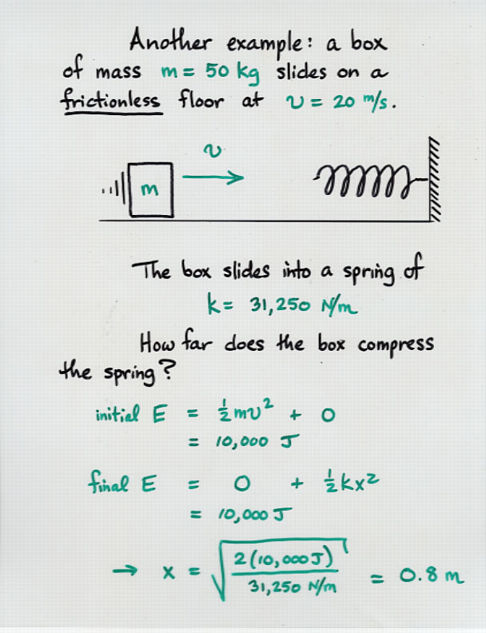 Another example: a box
of mass m = 50 kg slides on a
frictionless floor at v = 20 m/s.
v
m
The box slides into a spring of
k = 31,250 N/m
How far does the box compress
the spring?
initial E = ½mv² + 0
= 10,000 J
final E = 0 + ½kx²
= 10,000 J
→ x = √(2(10,000 J) / 31,250 N/m) = 0.8 m